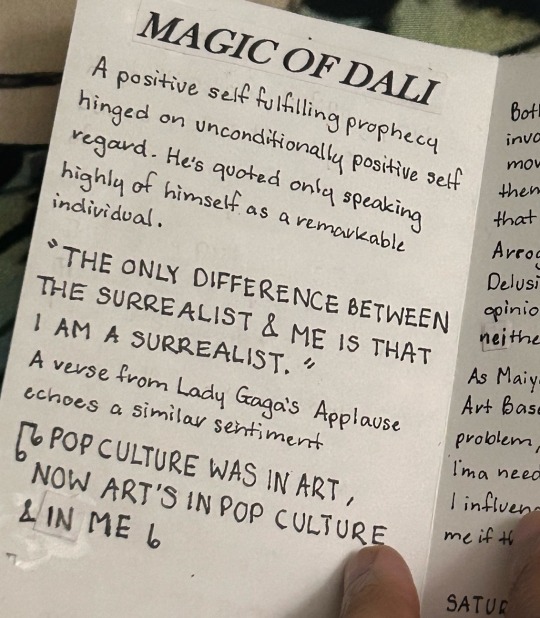 MAGIC OF DALI
A positive self fulfilling prophecy
hinged on unconditionally positive self
regard. He's quoted only speaking
highly of himself as a remarkable
individual.
"THE ONLY DIFFERENCE BETWEEN
THE SURREALIST & ME IS THAT
I AM A SURREALIST."
A verse from Lady Gaga's Applause
echoes a similar sentiment
POP CULTURE WAS IN ART,
NOW ART'S IN POP CULTURE
& IN ME
Bot
invo
mov
then
that
Arrog
Delusi
opinio
neithe
As Maiy
Art Bas
problem,
I'ma need
I influen
me if th
SATUR